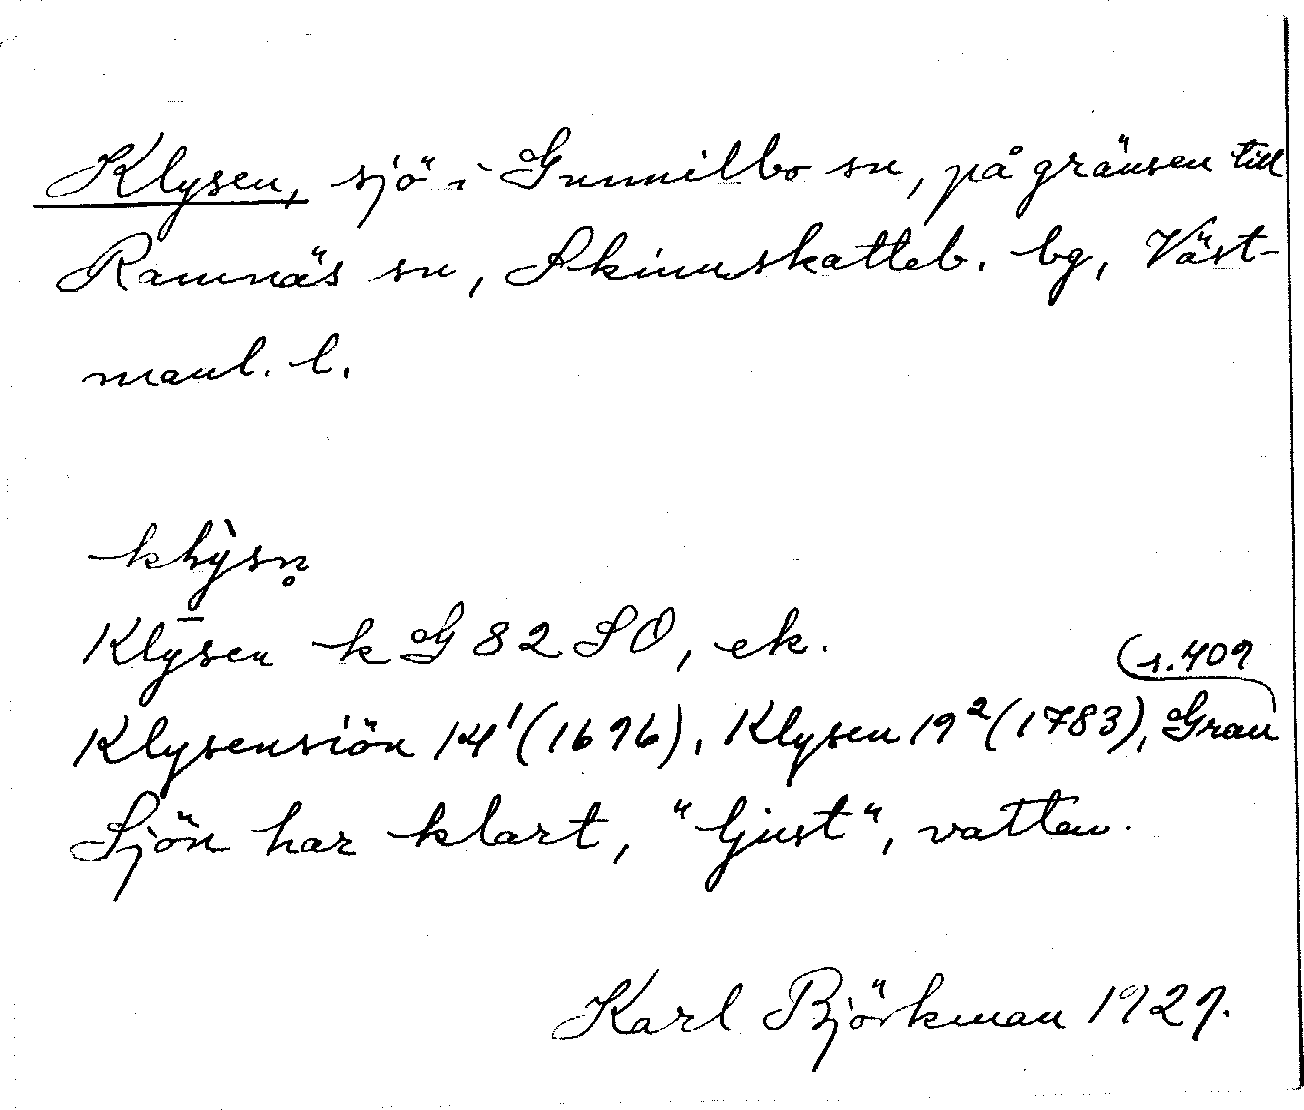 Klysen, sjö i Gunnilbo sn, på gränsen till
Ramnäs sn, Skinnskatteb. bg, Väst-
manl. l.
klỳsn̥
Klysen k G 82 SO, ek.
(s. 409
Klysensiön 14¹ (1696), Klysen 19² (1783), Grau
Sjön har klart, "ljust", vatten.
Karl Björkman 1927.